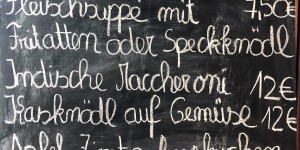 Fleischsuppe mit 7,50€
Fritatten oder Speckknödl
Indische Maccheroni 12€
Kasknödl auf Gemüse 12€